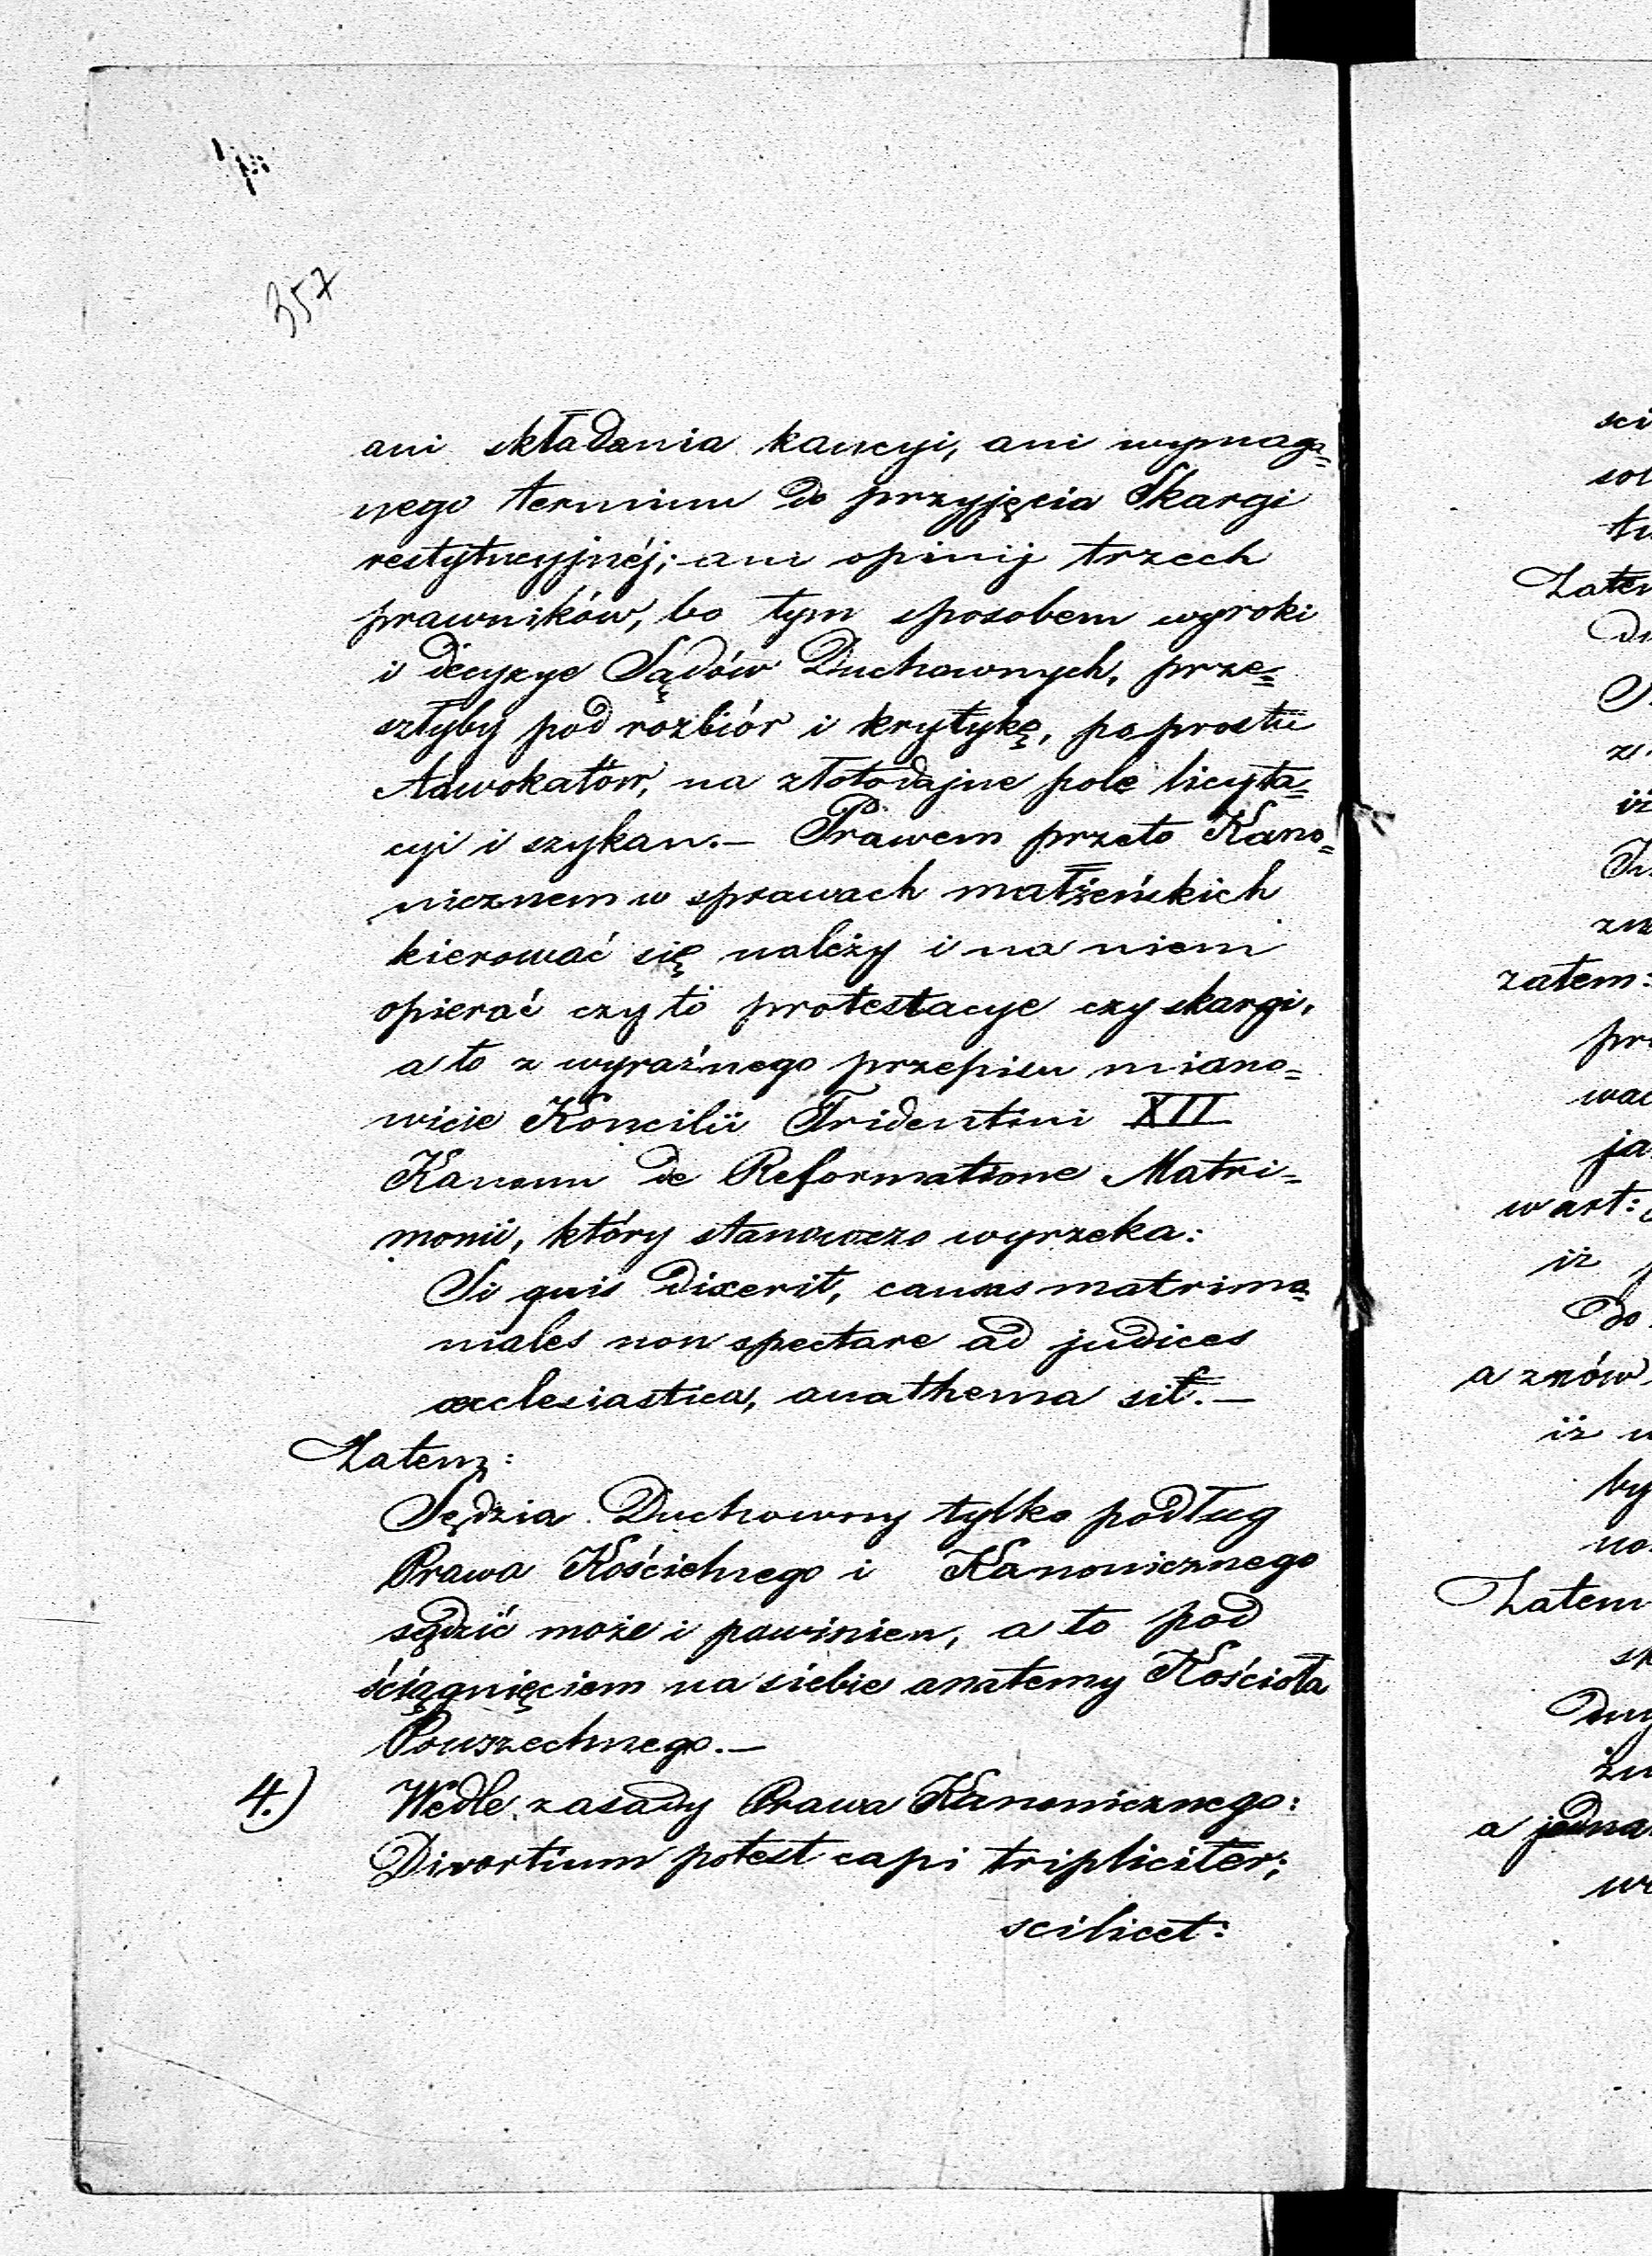 357
ani składania kaucyi, ani wymaga=
nego terminu do przyjęcia Skargi
restytucyjnéj; ani opinij trzech
prawników, bo tym sposobem wyroki
i decyzye Sądów Duchownych, prze=
szłyby pod rozbiór i krytykę, po prostu
Adwokatów, na złotodajne pole licyta=
cyi i szykan.— Prawem przeto Kano=
nicznem w sprawach małżeńskich
kierować się należy i na niem
opierać czy to protestacye czy skargi,
a to z wyraźnego przepisu miano=
wicie Koncilii Tridentini XII
Kanonu de Reformatione Matri=
monii, który stanowczo wyrzeka:
Si quis dixerit, causas matrimo=
niales non spectare ad judices
ecclesiasticos, anathema sit.—
Zatem:
Sędzia Duchowny tylko podług
Prawa Kościelnego i Kanonicznego
sądzić może i powinien, a to pod
ściągnięciem na siebie anatemy Kościoła
Powszechnego.—
4.) Wedle zasady Prawa Kanonicznego:
Divortium potest capi tripliciter;
scilicet:
sci
tu
Zatem
zatem:
wac
ja
w art:
iż
do
a znów
iż w
by
Zatem
a jedna